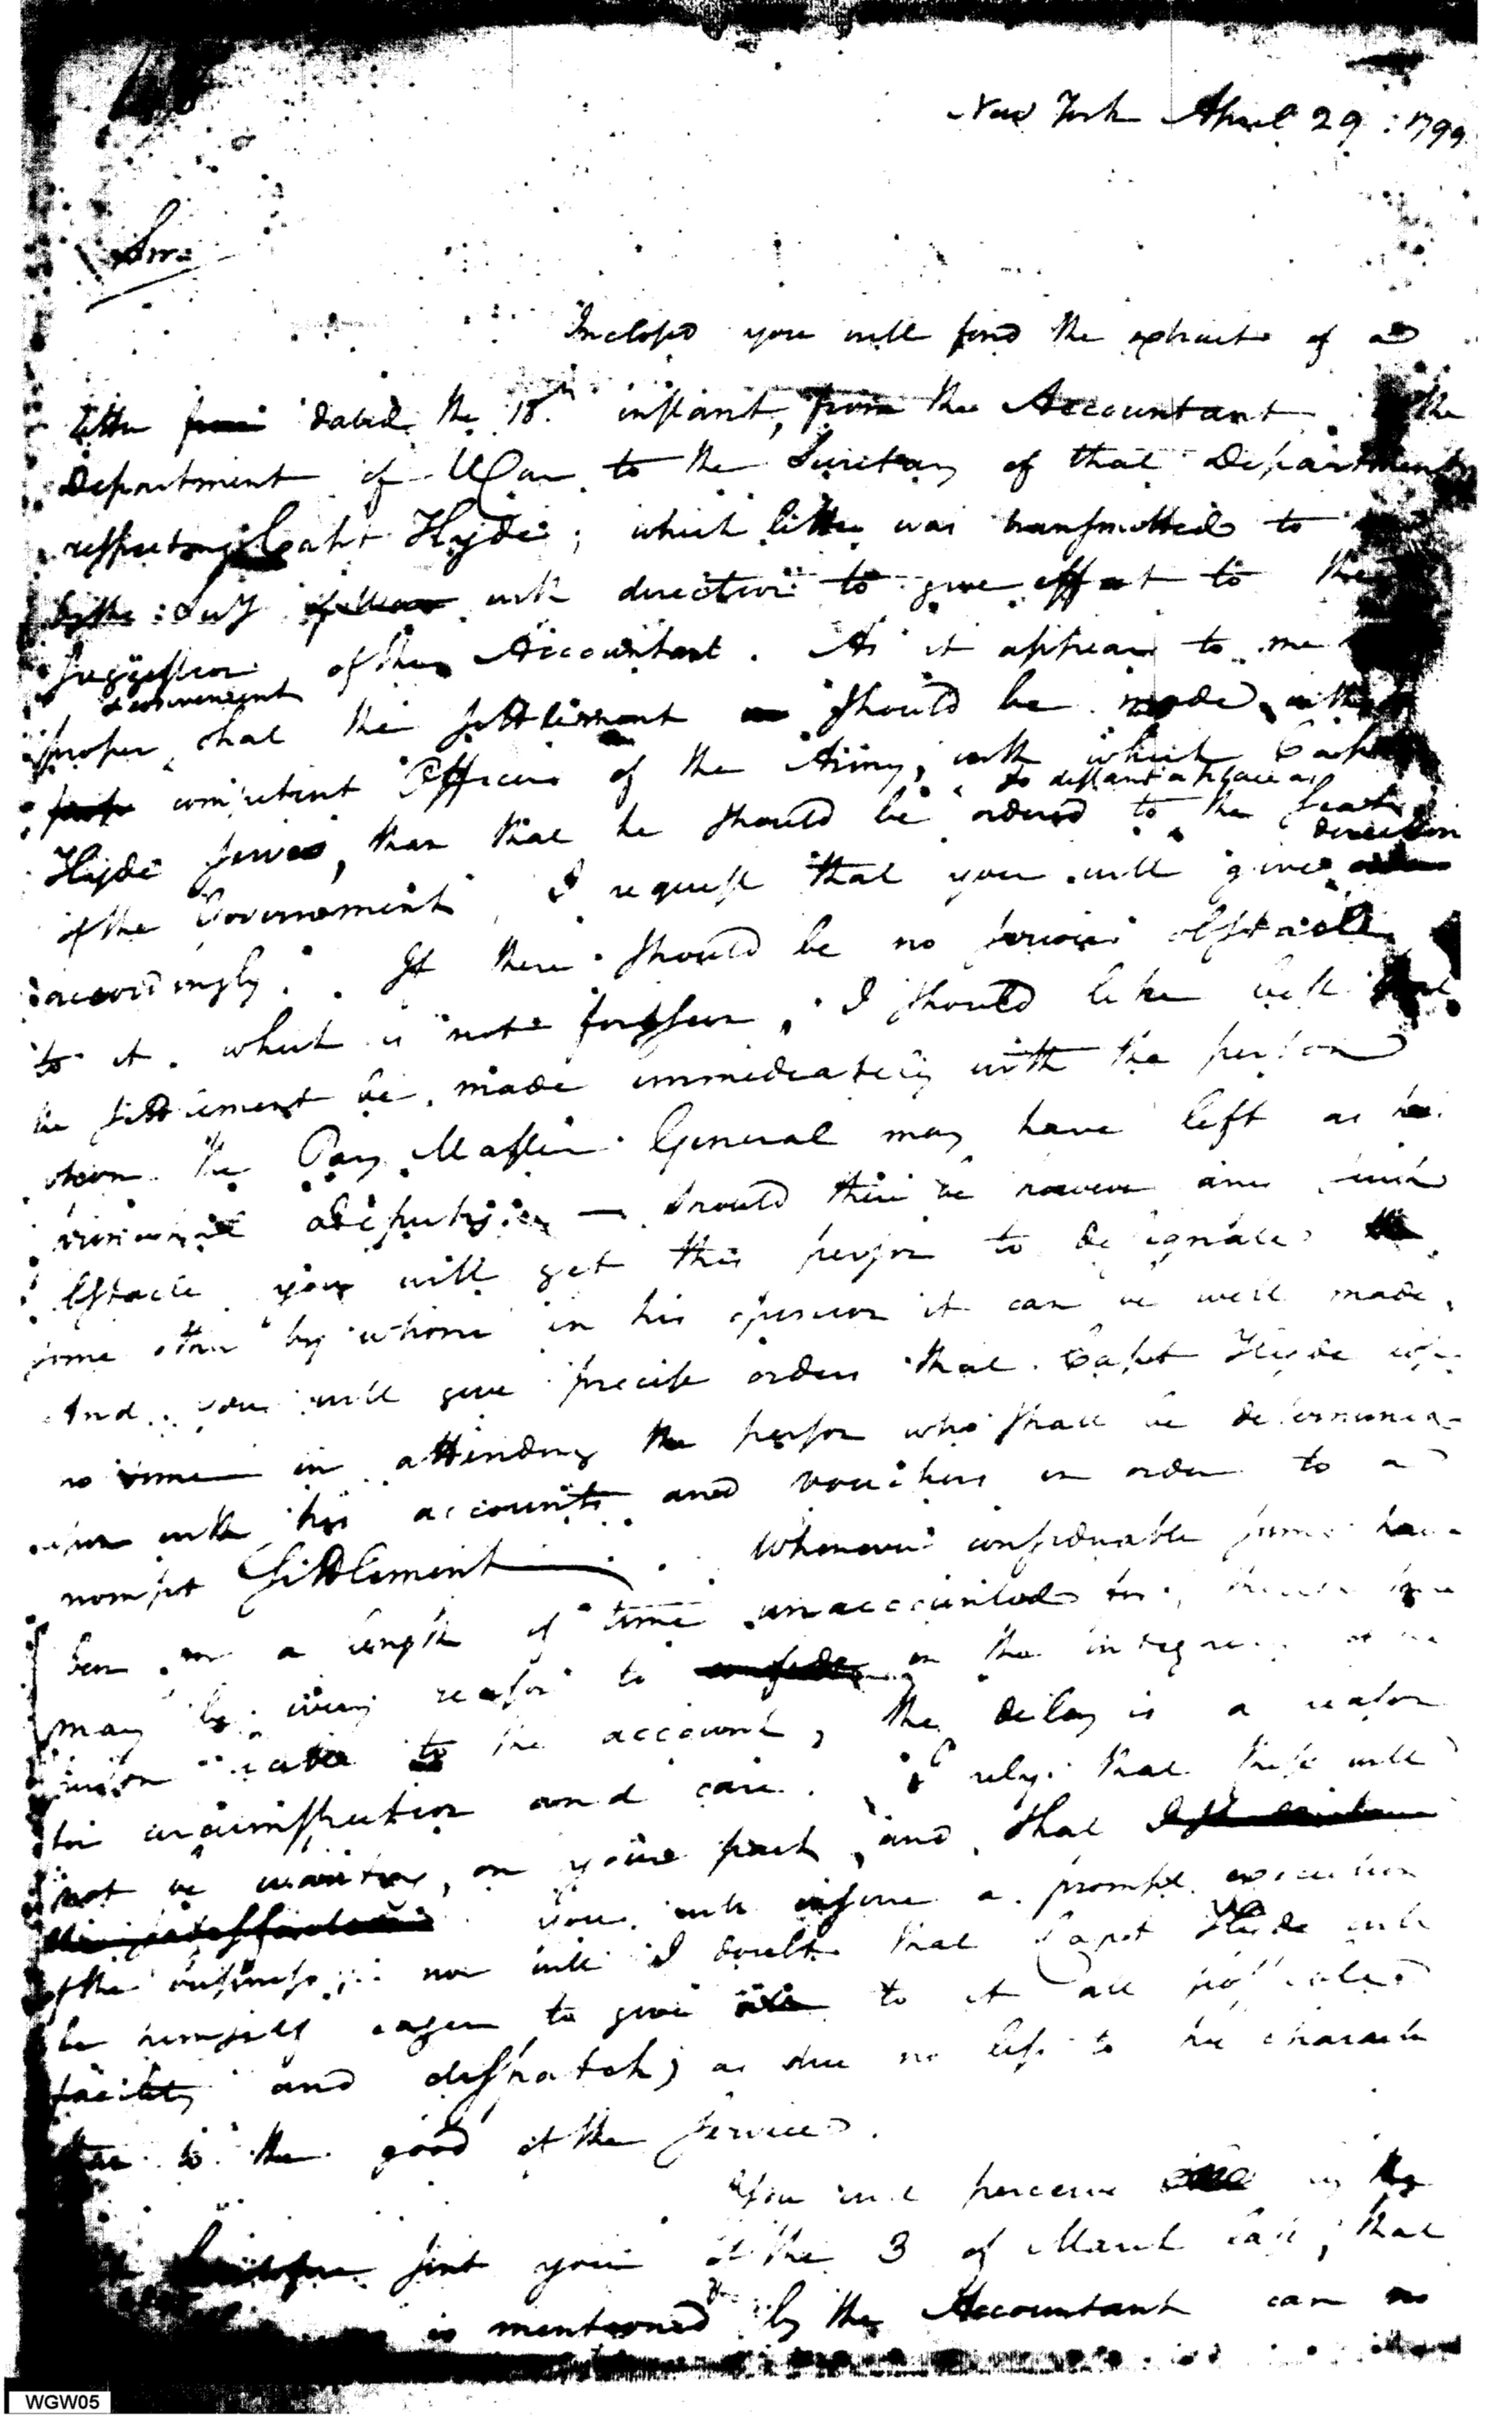 New York April 29 : 1799
Sir
Inclosed you will find the extract of a
letter from dated the 18th instant, from the Accountant the
Department of War to the Secretary of that Department
respecting Capt Hyde ; which letter was transmitted to
by the Secy with direction to give effect to the
suggestion of the Accountant . As it appears to me
& convenient
proper that the settlement should be made with
competent Officers of the Army, with which Capt
so distant a place as
Hyde serves, than that he should be ordered to the Seat
direction
of the Government , I request that you will give
accordingly . If there should be no serious obstacle
to it , which is not foreseen , I should like best that
the settlement be made immediately with the person
whom the Pay Master General may have left as his
provisional deputy — should there be however any such
obstacle you will get this person to designate
some other by whom in his opinion it can be well made .
And you will give precise orders that Capt Hyde
no time in attending the person who shall be determined
upon with his accounts and vouchers in order to a
prompt Settlement . Whenever considerable sums have
been for a length of time unaccounted for , though there
may be every reason to confide in the integrity of the
person to the account , the delay is a reason
for circumspection and care . I rely that these will
not be wanting , on your part , and that
You will insure a prompt execution
of the business ; nor will I doubt that Capt Hyde will
be himself eager to give to it all possible
facility and dispatch ; as due no less to his character
than to the good of the service .
You will perceive by the
sent you the 3 of March last , that
is mentioned by the Accountant can no
WGW05